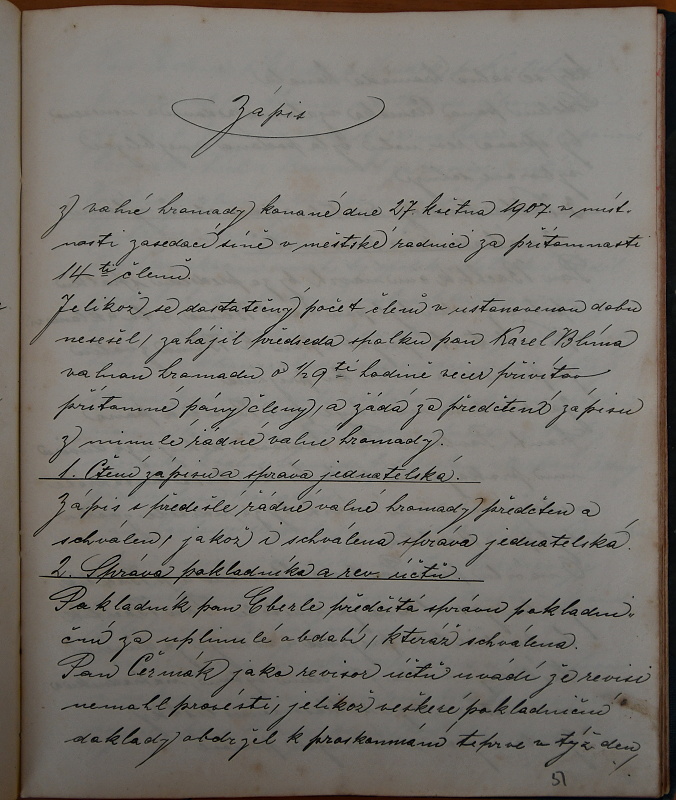 Zápis
z valné hromady konané dne 27. května 1907. v míst-
nosti zasedací síně v městské radnici za přítomnosti
14 ti členů.
Jelikož se dostatečný počet členů v ustanovenou dobu
nesešel, zahájil předseda spolku pan Karel Blíma
valnou hromadu o 1/2 9 té hodině večer přivítav
přítomné pány členy, a žádá za předčtení zápisu
z minulé řádné valné hromady.
1. Čtení zápisu a správa jednatelská.
Zápis s předešlé řádné valné hromady předčten a
schválen, jakož i schválena správa jednatelská.
2. Správa pokladníka a rev. účtů.
Pokladník pan Eberle předčítá správu pokladni-
ční za uplinulé období, kteráž schválena.
Pan Čermák jako revisor účtů uvádí že revisi
nemohl provésti, jelikož veškeré pokladniční
doklady obdržel k proskoumání teprve v týž den,
51